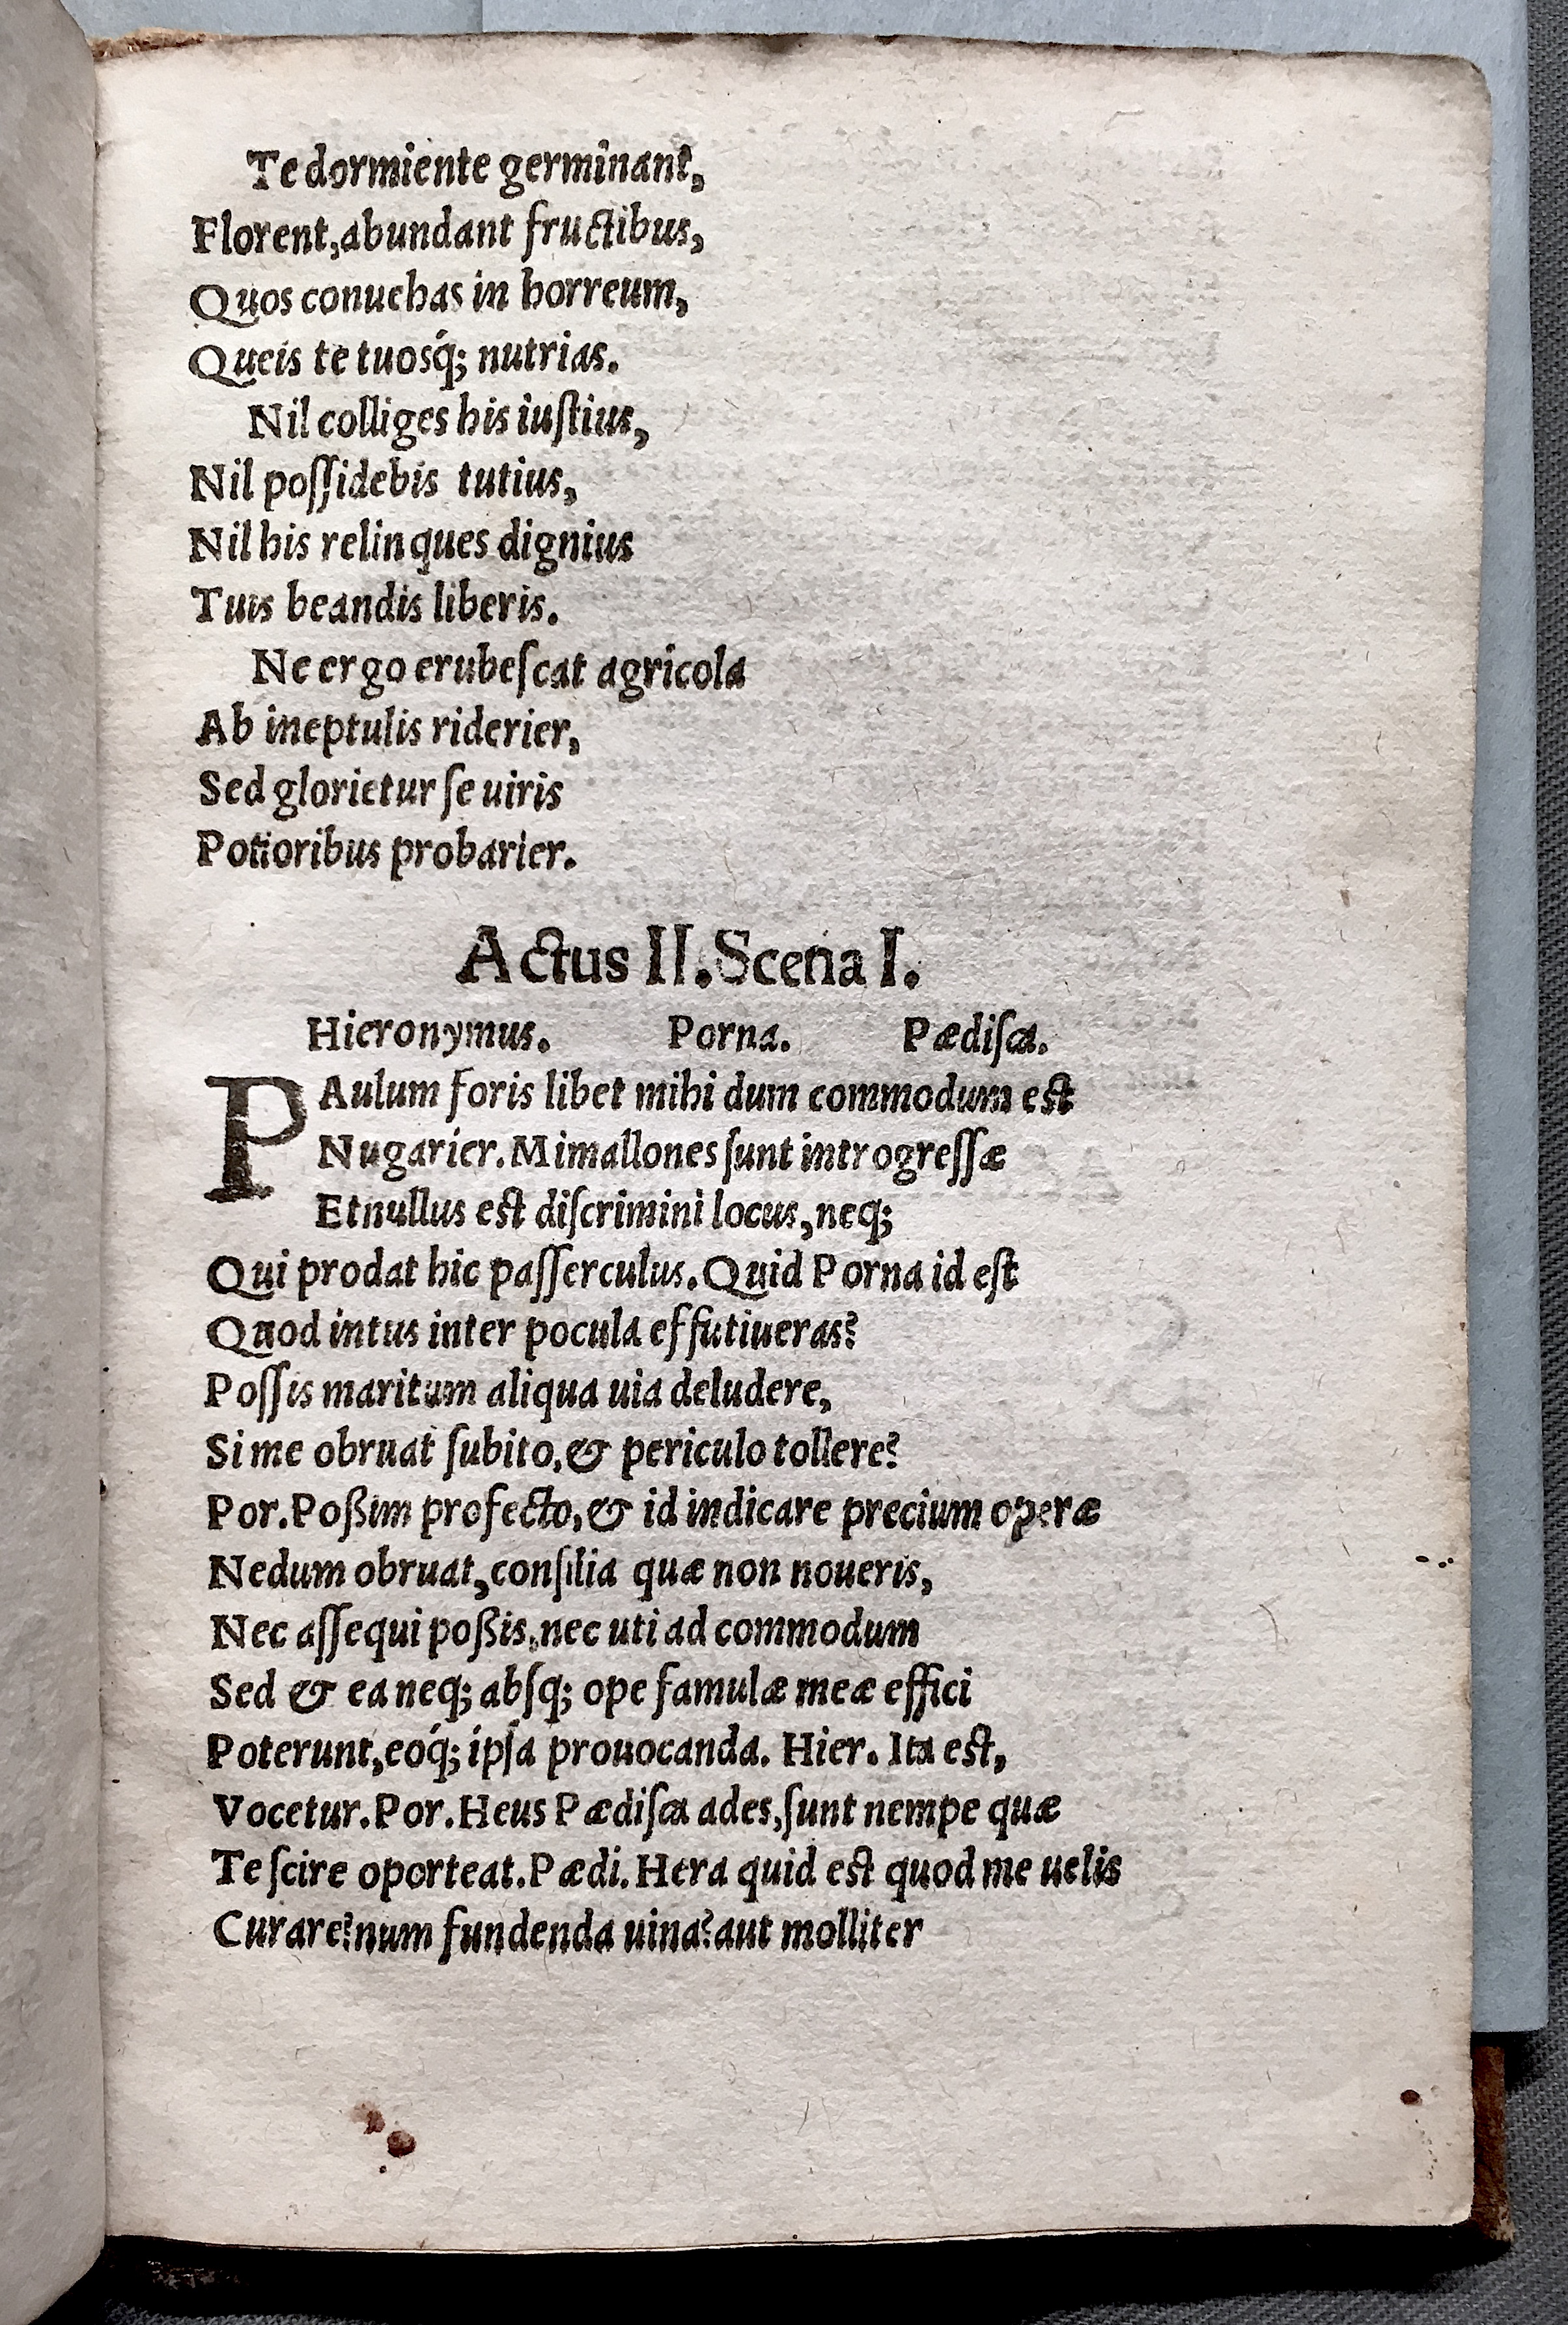 Te dormiente germinant,
Florent, abundant fructibus,
Quos conuehas in horreum,
Queis te tuosq́; nutrias.
Nil colliges his iuſtius,
Nil poſſidebis tutius,
Nil his relinques dignius
Tuis beandis liberis.
Ne ergo erubeſcat agricola
Ab ineptulis riderier,
Sed glorietur ſe uiris
Potioribus probarier.
Actus II. Scena I.
Hieronymus. Porna. Pædiſca.
PAulum foris libet mihi dum commodum eſt
Nugarier. Mimallones ſunt introgreſſæ
Et nullus eſt diſcrimini locus, neq;
Qui prodat hic paſſerculus. Quid Porna id eſt
Quod intus inter pocula effutiueras?
Poſſis maritum aliqua uia deludere,
Si me obruat ſubito, & periculo tollere?
Por. Poßim profecto, & id indicare precium operæ
Nedum obruat, conſilia quæ non noueris,
Nec aſſequi poßis, nec uti ad commodum
Sed & ea neq; abſq; ope famulæ meæ effici
Poterunt, eoq́; ipſa prouocanda. Hier. Ita eſt,
Vocetur. Por. Heus Pædiſca ades, ſunt nempe quæ
Te ſcire oporteat. Pædi. Hera quid eſt quod me uelis
Curare? num fundenda uina? aut molliter